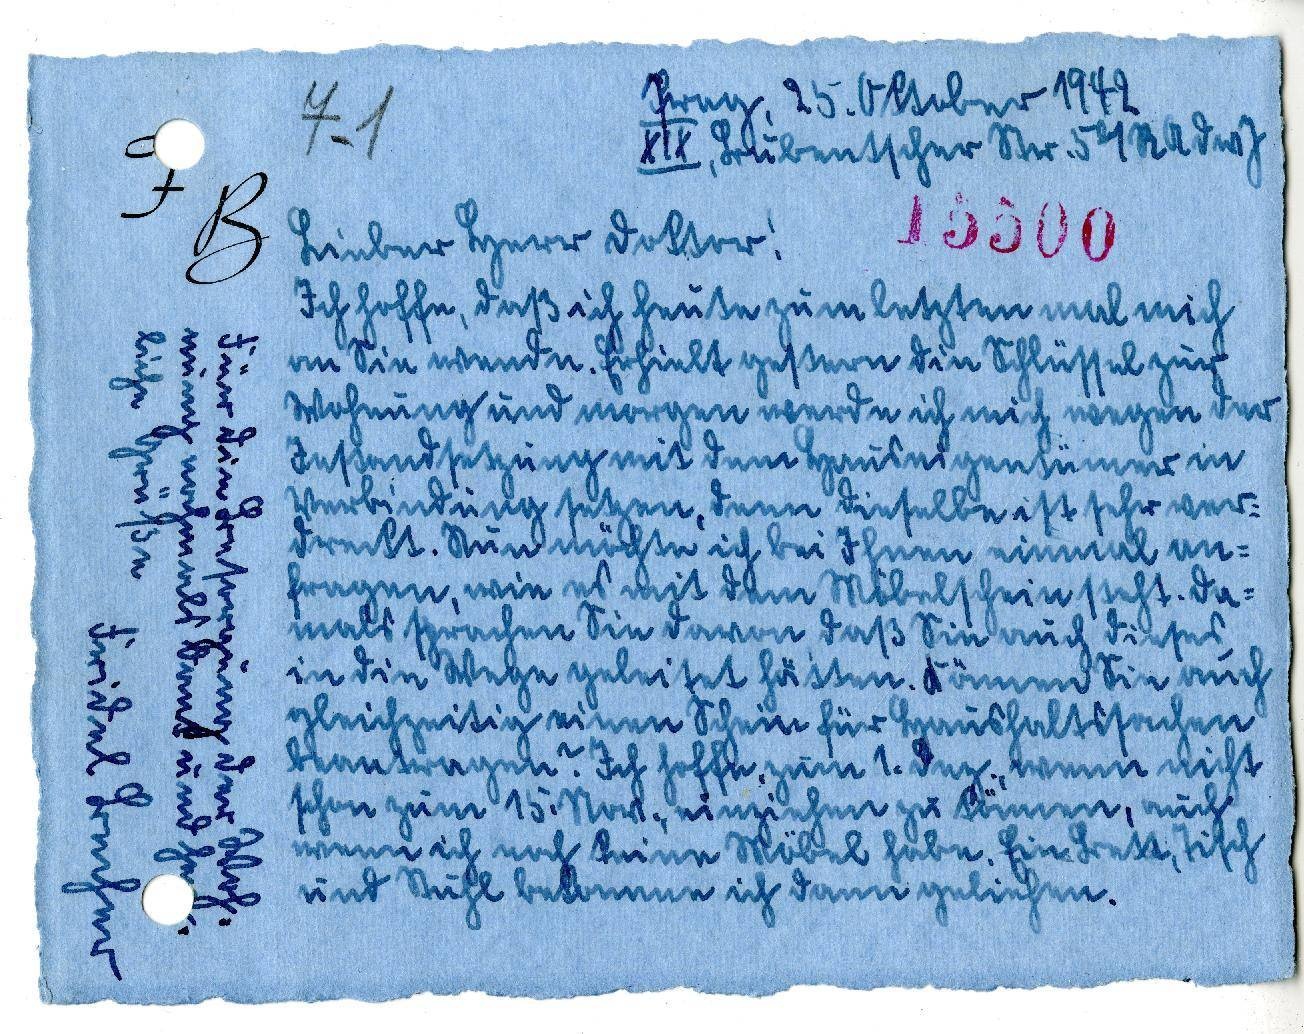 7-1
Prag, 25. Oktober 1942
XIX, Trubentscher Str. 5 RAdwJ
B
15500
Lieber Herr Doktor!
Ich hoffe, daß ich heute zum letzten mal mich
an Sie wende. Erhielt gestern die Schlüssel zur
Wohnung und morgen werde ich mich wegen der
Instandsetzung mit dem Hauseigentümer in
Verbindung setzen, denn dieselbe ist sehr ver=
dreckt. Nun möchte ich bei Ihnen einmal an=
fragen, wie es mit dem Möbelschein steht. Da=
mals sprachen Sie davon, daß Sie auch dieses
in die Wege geleitet hätten. Können Sie auch
gleichzeitig einen Schein für Haushaltssachen
beantragen? Ich hoffe, zum 1. Dez., wenn nicht
schon zum 15. Nov., einziehen zu können, auch
wenn ich noch keine Möbel habe. Ein Bett, Tisch
und Stuhl bekomme ich dann geliehen.
Für die Besorgung der
meinen Dank und herz-
liche Grüße